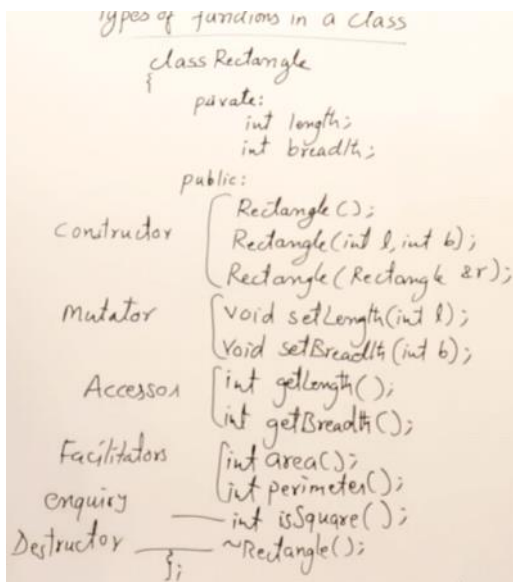 Types of functions in a class
class Rectangle
{
private:
int length;
int breadth;
public:
Constructor Rectangle();
Rectangle(int l, int b);
Rectangle(Rectangle &r);
Mutator void setLength(int l);
void setBreadth(int b);
Accessor int getLength();
int getBreadth();
Facilitators int area();
int perimeter();
enquiry int isSquare();
Destructor ~Rectangle();
};